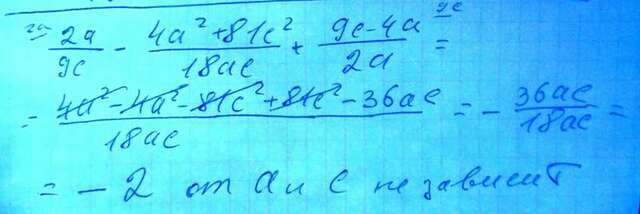 2a 2a/9c - (4a² + 81c²)/18ac + (9c - 4a)/2a 9c =
= (4a² - 4a² - 81c² + 81c² - 36ac)/18ac = - 36ac/18ac =
= - 2 от a и c не зависит